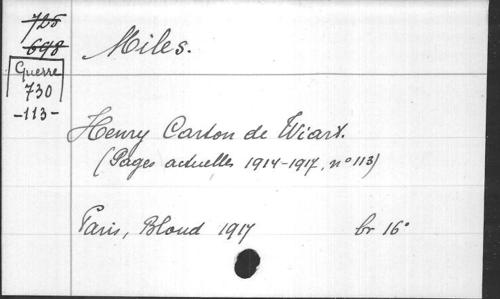 725
698
Guerre
730
-113-
Miles.
Henry Carton de Wiart.
(Pages actuelles 1914-1917, n° 113)
Paris, Bloud 1917 br 16°